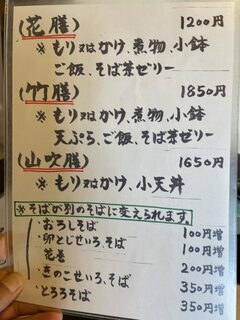 (花膳) 1200円
※もり又はかけ、煮物、小鉢
ご飯、そば茶ゼリー
(竹膳) 1850円
※もり又はかけ、煮物、小鉢
天ぷら、ご飯、そば茶ゼリー
(山吹膳) 1650円
※もり又はかけ、小天丼
※そばが別のそばに変えられます。
・おろしそば 100円増
・卵とじせいろ、そば 100円増
・花巻 200円増
・きのこせいろ、そば 350円増
・とろろそば 350円増